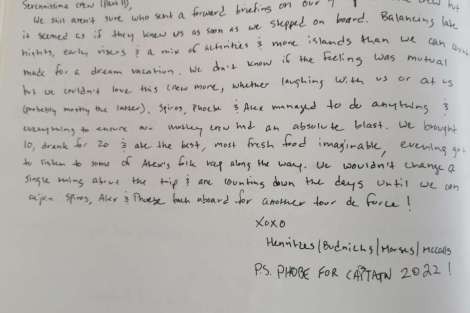 Serenissima crew (Part II),
We still aren't sure who sent a forward briefing on our crew but
it seemed as if they knew us as soon as we stepped on board. Balancing late
nights, early risers & a mix of activities & more islands than we can
made for a dream vacation. We don't know if the feeling was mutual
but we couldn't love this crew more, whether laughing with us or at us
(probably mostly the latter). Spiros, Phoebe & Alex managed to do anything &
everything to ensure our motley crew had an absolute blast. We brought
10, drank for 20 & ate the best, most fresh food imaginable, evening got
to listen to some of Alex's folk rap along the way. We wouldn't change a
single thing about the trip & are counting down the days until we can
join Spiros, Alex & Phoebe back aboard for another tour de force!
XOXO
Henritzes/Budnichs/Morses/McCalls
P.S. PHOBE FOR CAPTAIN 2022!